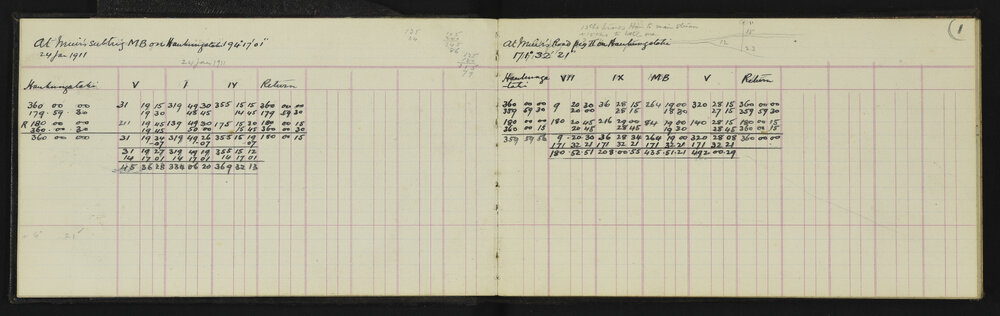 At Muir's subtrig MB on Haukungatahi 194° 17' 01"
24 Jan 1911
24 Jan 1911
Haukungatahi V I IV Return
360 00 00 31 19 15 319 49 30 355 15 15 360 00 00
179 . 59 . 30 19 30 45 45 14 45 179 59 30
R 180 00 00 211 19 45 139 49 30 175 15 30 180 00 15
360 . 00 . 30 19 45 50 00 15 45 360 00 30
360 00 00 31 19 34 319 49 26 355 15 19 180 00 15
-07 -07 -07
31 19 27 319 49 19 355 15 12
14 17 01 14 17 01 14 17 01
45 36 28 334 06 20 369 32 13
1
At Muir's Road Peg II on Haukungatahi
171° 32' 21"
Haukungatahi VII IX MB V Return
360 00 00 9 20 30 36 28 15 264 19 00 320 28 15 360 00 00
359 59 30 20 00 28 15 18 30 27 15 359 59 30
180 00 00 180 20 45 216 29 00 84 19 00 140 28 15 180 00 15
360 00 15 20 45 28 45 19 30 28 45 360 00 15
359 59 56 9 . 20 . 30 36 28 34 264 19 00 320 28 08 360 00 00
171 32 21 171 32 21 171 32 21 171 32 21
180 . 52 . 51 208 . 00 . 55 435 . 51 . 21 492 . 00 . 29